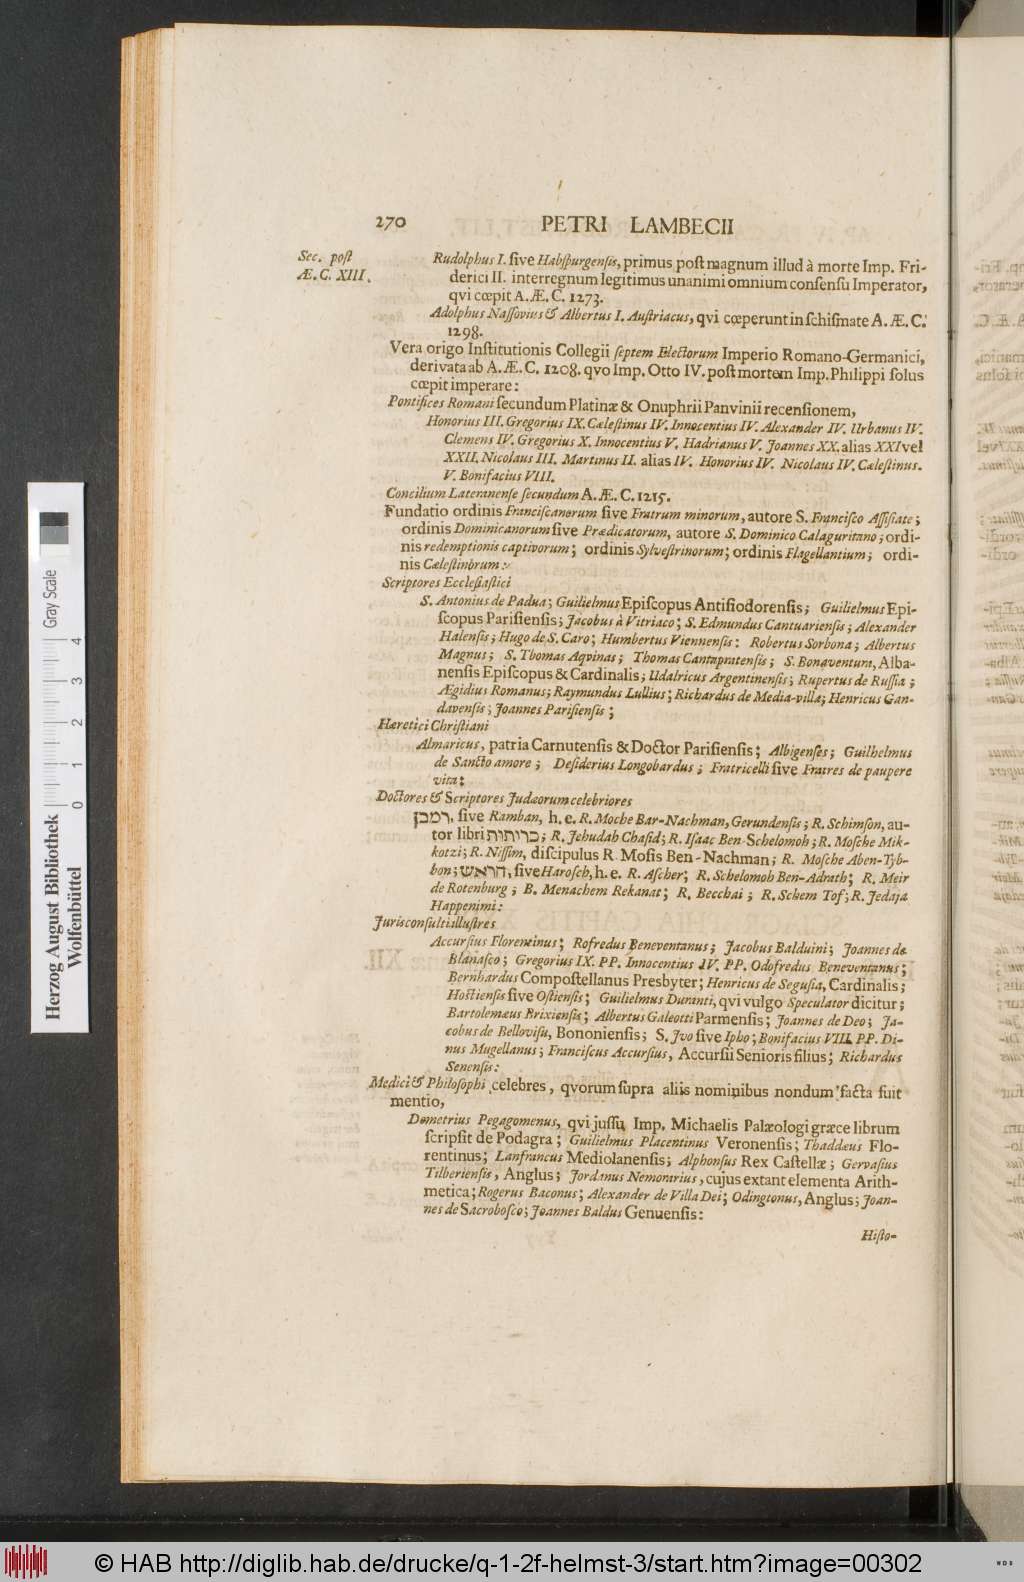 270 PETRI LAMBECII
Sec. poſt
Æ.C. XIII.
Rudolphus I. ſive Habſpurgenſis, primus poſt magnum illud à morte Imp. Fri-
derici II. interregnum legitimus unanimi omnium conſenſu Imperator,
qvi cœpit A.Æ.C. 1273.
Adolphus Naſſovius & Albertus I. Auſtriacus, qvi cœperunt in ſchiſmate A.Æ.C.
1298.
Vera origo Inſtitutionis Collegii ſeptem Electorum Imperio Romano-Germanici,
derivata ab A.Æ.C. 1208. qvo Imp. Otto IV. poſt mortem Imp. Philippi ſolus
cœpit imperare:
Pontifices Romani ſecundum Platinæ & Onuphrii Panvinii recenſionem,
Honorius III. Gregorius IX. Cæleſtinus IV. Innocentius IV. Alexander IV. Urbanus IV.
Clemens IV. Gregorius X. Innocentius V. Hadrianus V. Joannes XX. alias XXI vel
XXII. Nicolaus III. Martinus II. alias IV. Honorius IV. Nicolaus IV. Cæleſtinus.
V. Bonifacius VIII.
Concilium Lateranenſe ſecundum A.Æ.C. 1215.
Fundatio ordinis Franciſcanorum ſive Fratrum minorum, autore S. Franciſco Aſſiſiate;
ordinis Dominicanorum ſive Prædicatorum, autore S. Dominico Calaguritano; ordi-
nis redemptionis captivorum; ordinis Sylveſtrinorum; ordinis Flagellantium; ordi-
nis Cæleſtinorum:
Scriptores Eccleſiaſtici
S. Antonius de Padua; Guilielmus Epiſcopus Antiſiodorenſis; Guilielmus Epi-
ſcopus Pariſienſis; Jacobus à Vitriaco; S. Edmundus Cantuarienſis; Alexander
Halenſis; Hugo de S. Caro; Humbertus Viennenſis: Robertus Sorbona; Albertus
Magnus; S. Thomas Aqvinas; Thomas Cantapratenſis; S. Bonaventura, Alba-
nenſis Epiſcopus & Cardinalis; Udalricus Argentinenſis; Rupertus de Ruſſia;
Ægidius Romanus; Raymundus Lullius; Richardus de Media-villa; Henricus Gan-
davenſis; Joannes Pariſienſis;
Hæretici Chriſtiani
Almaricus, patria Carnutenſis & Doctor Pariſienſis; Albigenſes; Guilhelmus
de Sancto amore; Deſiderius Longobardus; Fratricelli ſive Fratres de paupere
vita:
Doctores & Scriptores Judæorum celebriores
רמבן, ſive Ramban, h. e. R. Moche Bar-Nachman, Gerundenſis; R. Schimſon, au-
tor libri כריתות; R. Jehudah Chaſid; R. Iſaac Ben Schelomoh; R. Moſche Mik-
kotzi; R. Niſſim, diſcipulus R. Moſis Ben-Nachman; R. Moſche Aben-Tyb-
bon; הראש, ſive Haroſch, h. e. R. Aſcher; R. Schelomoh Ben-Adrath; R. Meir
de Rotenburg; B. Menachem Rekanat; R. Becchai; R. Schem Tof; R. Jedaja
Happenimi:
Jurisconſulti illuſtres
Accurſius Florentinus; Rofredus Beneventanus; Jacobus Balduini; Joannes de
Blanaſco; Gregorius IX. PP. Innocentius IV. PP. Odofredus Beneventanus;
Bernhardus Compoſtellanus Presbyter; Henricus de Seguſia, Cardinalis;
Hoſtienſis ſive Oſtienſis; Guilielmus Duranti, qvi vulgo Speculator dicitur;
Bartolemæus Brixienſis; Albertus Galeotti Parmenſis; Joannes de Deo; Ja-
cobus de Belloviſu, Bononienſis; S. Jvo ſive Ipho; Bonifacius VIII. PP. Di-
nus Mugellanus; Franciſcus Accurſius, Accurſii Senioris filius; Richardus
Senenſis:
Medici & Philoſophi celebres, qvorum ſupra aliis nominibus nondum facta fuit
mentio,
Demetrius Pegagomenus, qvi juſſu Imp. Michaelis Palæologi græce librum
ſcripſit de Podagra; Guilielmus Placentinus Veronenſis; Thaddæus Flo-
rentinus; Lanfrancus Mediolanenſis; Alphonſus Rex Caſtellæ; Gervaſius
Tilberienſis, Anglus; Jordanus Nemorarius, cujus extant elementa Arith-
metica; Rogerus Baconus; Alexander de Villa Dei; Odingtonus, Anglus; Joan-
nes de Sacroboſco; Joannes Baldus Genuenſis:
Hiſto-
Herzog August Bibliothek
Wolfenbüttel
Gray Scale
0 1 2 3 4
© HAB http://diglib.hab.de/drucke/q-1-2f-helmst-3/start.htm?image=00302